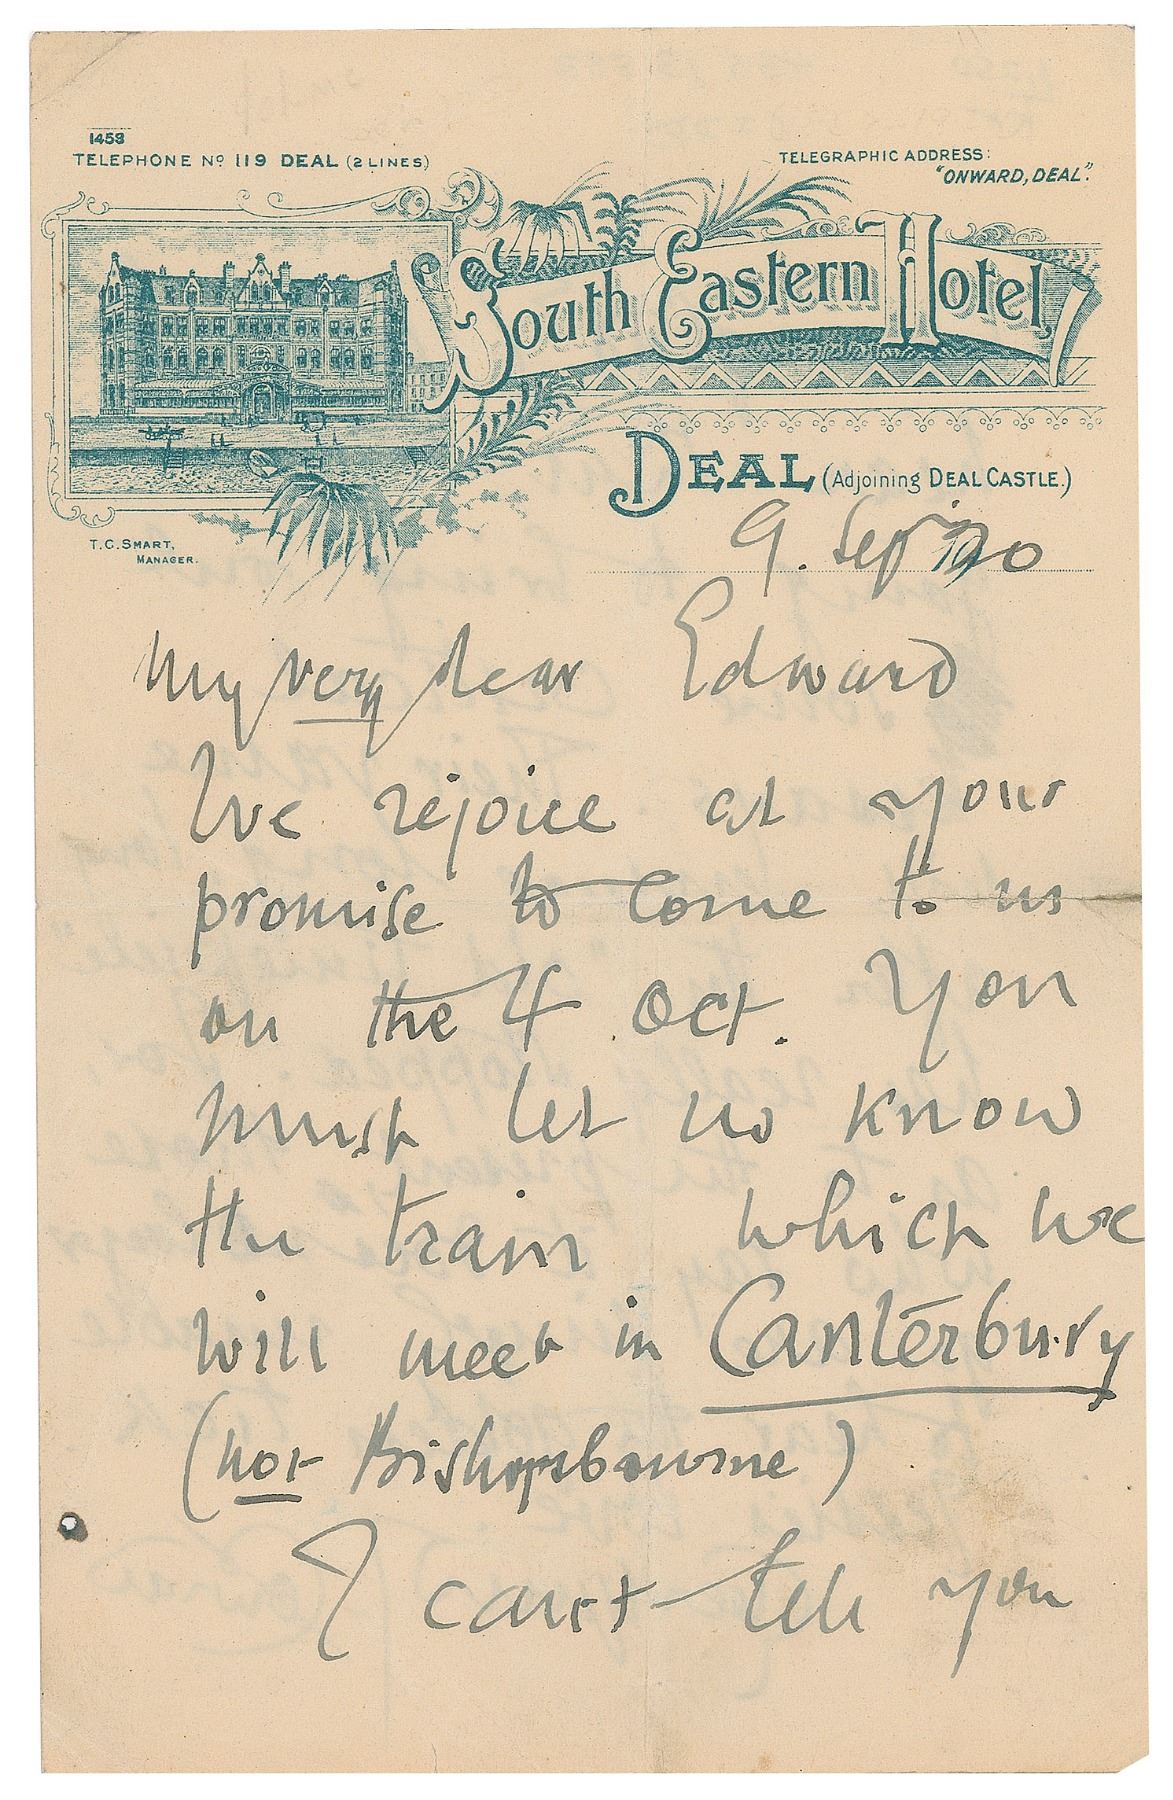 1453
TELEPHONE Nº 119 DEAL (2 LINES)
TELEGRAPHIC ADDRESS:
"ONWARD, DEAL".
South Eastern Hotel,
DEAL (Adjoining DEAL CASTLE.)
T.C. SMART,
MANAGER.
9. Sep 1920
My very dear Edward
We rejoice at your
promise to come to us
on the 4 Oct. You
must let us know
the train which we
will meet in Canterbury
(not Bishopsbourne)
I can't tell you